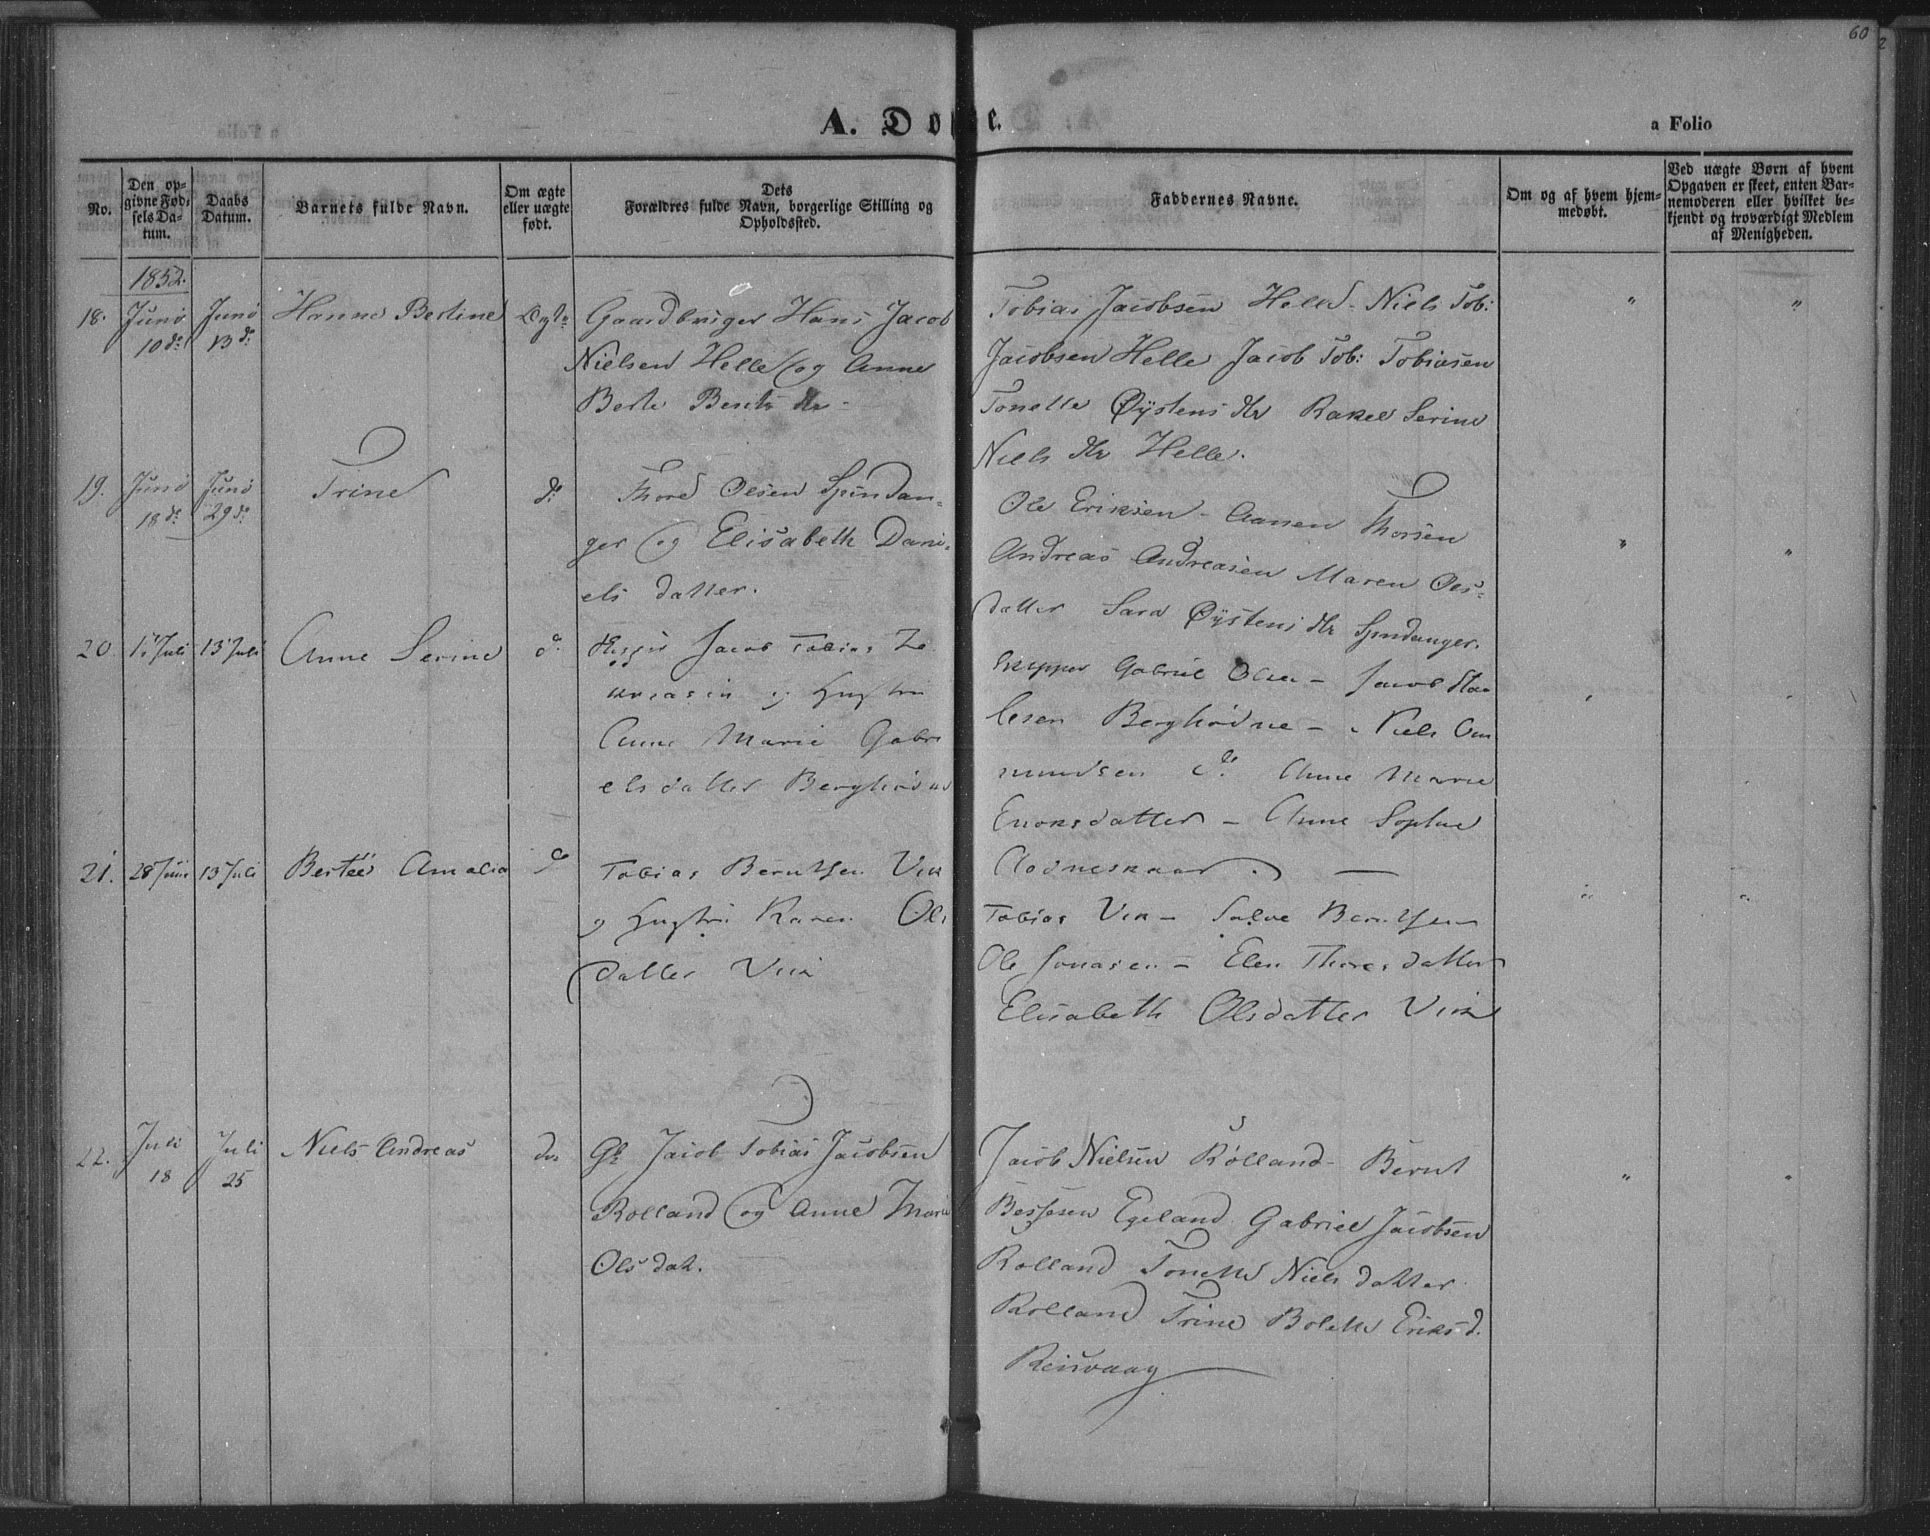 60
2
A. Døbte.
a Folio
No.
Den op-
givne Fød-
sels Da-
tum.
Daabs
Datum.
Barnets fulde Navn.
Om ægte
eller uægte
født.
Dets
Forældres fulde Navn, borgerlige Stilling og
Opholdssted.
Faddernes Navne.
Om og af hvem hjem-
medøbt.
Ved uægte Børn af hvem
Opgaven er skeet, enten Bar-
nemoderen eller hvilket be-
kjendt og troværdigt Medlem
af Menigheden.
1852.
18.
Juni
10de
Juni
13de
Hanne Bertine
Ægte
Gaardbruger Hans Jacob
Nielsen Helle og Anne
Berte Bents dtr
Tobias Jacobsen Helle - Niels Tob:
Jacobsen Helle Jacob Tob: Tobiasen
Tonette Øystens dtr Rakel Serine
Niels dtr Helle.
"
"
19.
Juni
18de
Juni
29de
Trine
do
Thore Olsen Spindan-
ger og Elisabeth Dani-
els datter.
Ole Eriksen - Aanen Thorsen
Andreas Andreasen Maren Ols-
datter Sara Øystens dtr Spindanger.
"
"
20
Juli
13 Juli
Anne Serine
do
Jacob Tobias Za
og Hustru
Anne Marie Gabri
elsdatter Berghødne
Skipper Gabriel Olsen - Jacob
Berghødne - Niels Om
mundsen do Anne Marie
Enoksdatter - Anne Sophie
21.
28 Juni
13 Juli
Amalia
do
Tobias Berntsen Vik
og Hustru Karen Ols
datter Viik
Tobias Vik - Salve Berntsen
Ole Jonasen - Elen Thoresdatter
Elisabeth Olsdatter Viik
"
"
22.
Juli
18
Juli
25
Niels Andreas
do
Gb Jacob Tobias Jacobsen
Rolland og Anne Marie
Olsdat.
Jacob Nielsen Rolland - Bernt
Bessesen Egeland Gabriel Jacobsen
Rolland Tonette Niels datter
Rolland Trine Bolette Eriks d.
Reisvaag
"
"